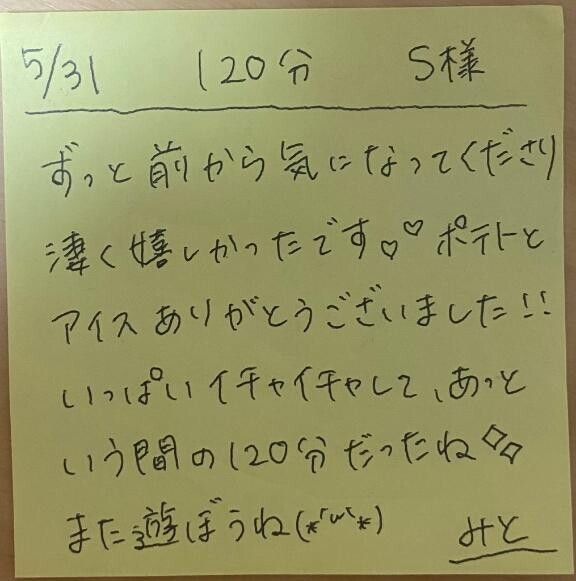 5/31 120分 S様
ずっと前から気になってくださり
凄く嬉しかったです♡♡ ポテトと
アイスありがとうございました!!
いっぱいイチャイチャして、あっと
いう間の120分だったね◇◇
また遊ぼうね(*'ω'*) みと